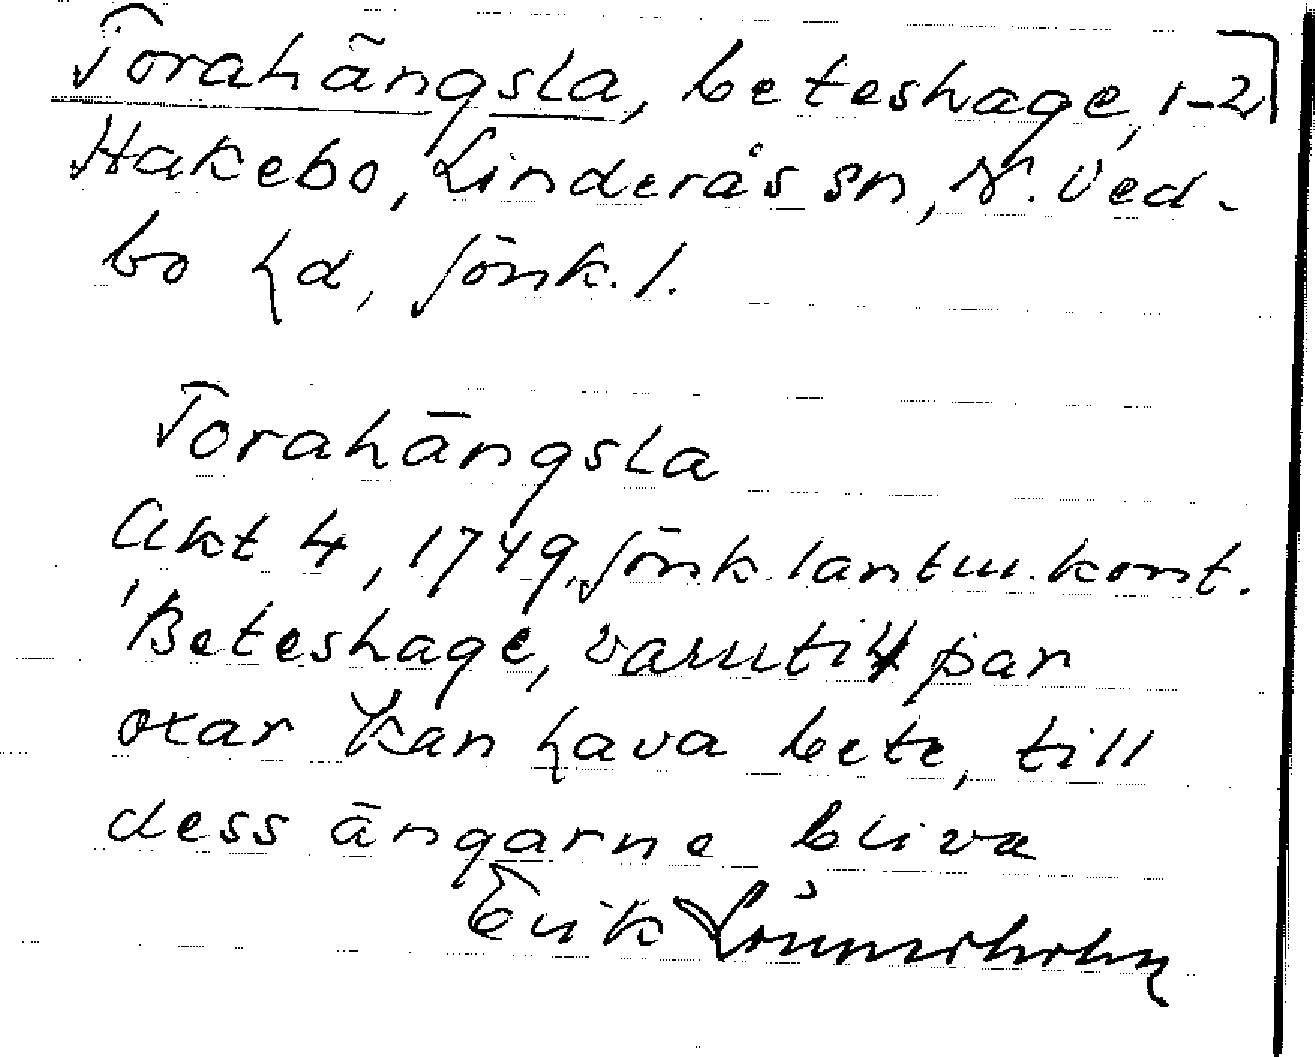 Torahängsla, beteshage, 1-2
Hakebo, Linderås sn, N. Ved-
bo hd, Jönk. l.
Torahängsla
Akt 4, 1749, Jönk. lantm. kont.
'Beteshage, varuti 4 par
oxar kan hava bete, till
dess ängarne bliva
Erik